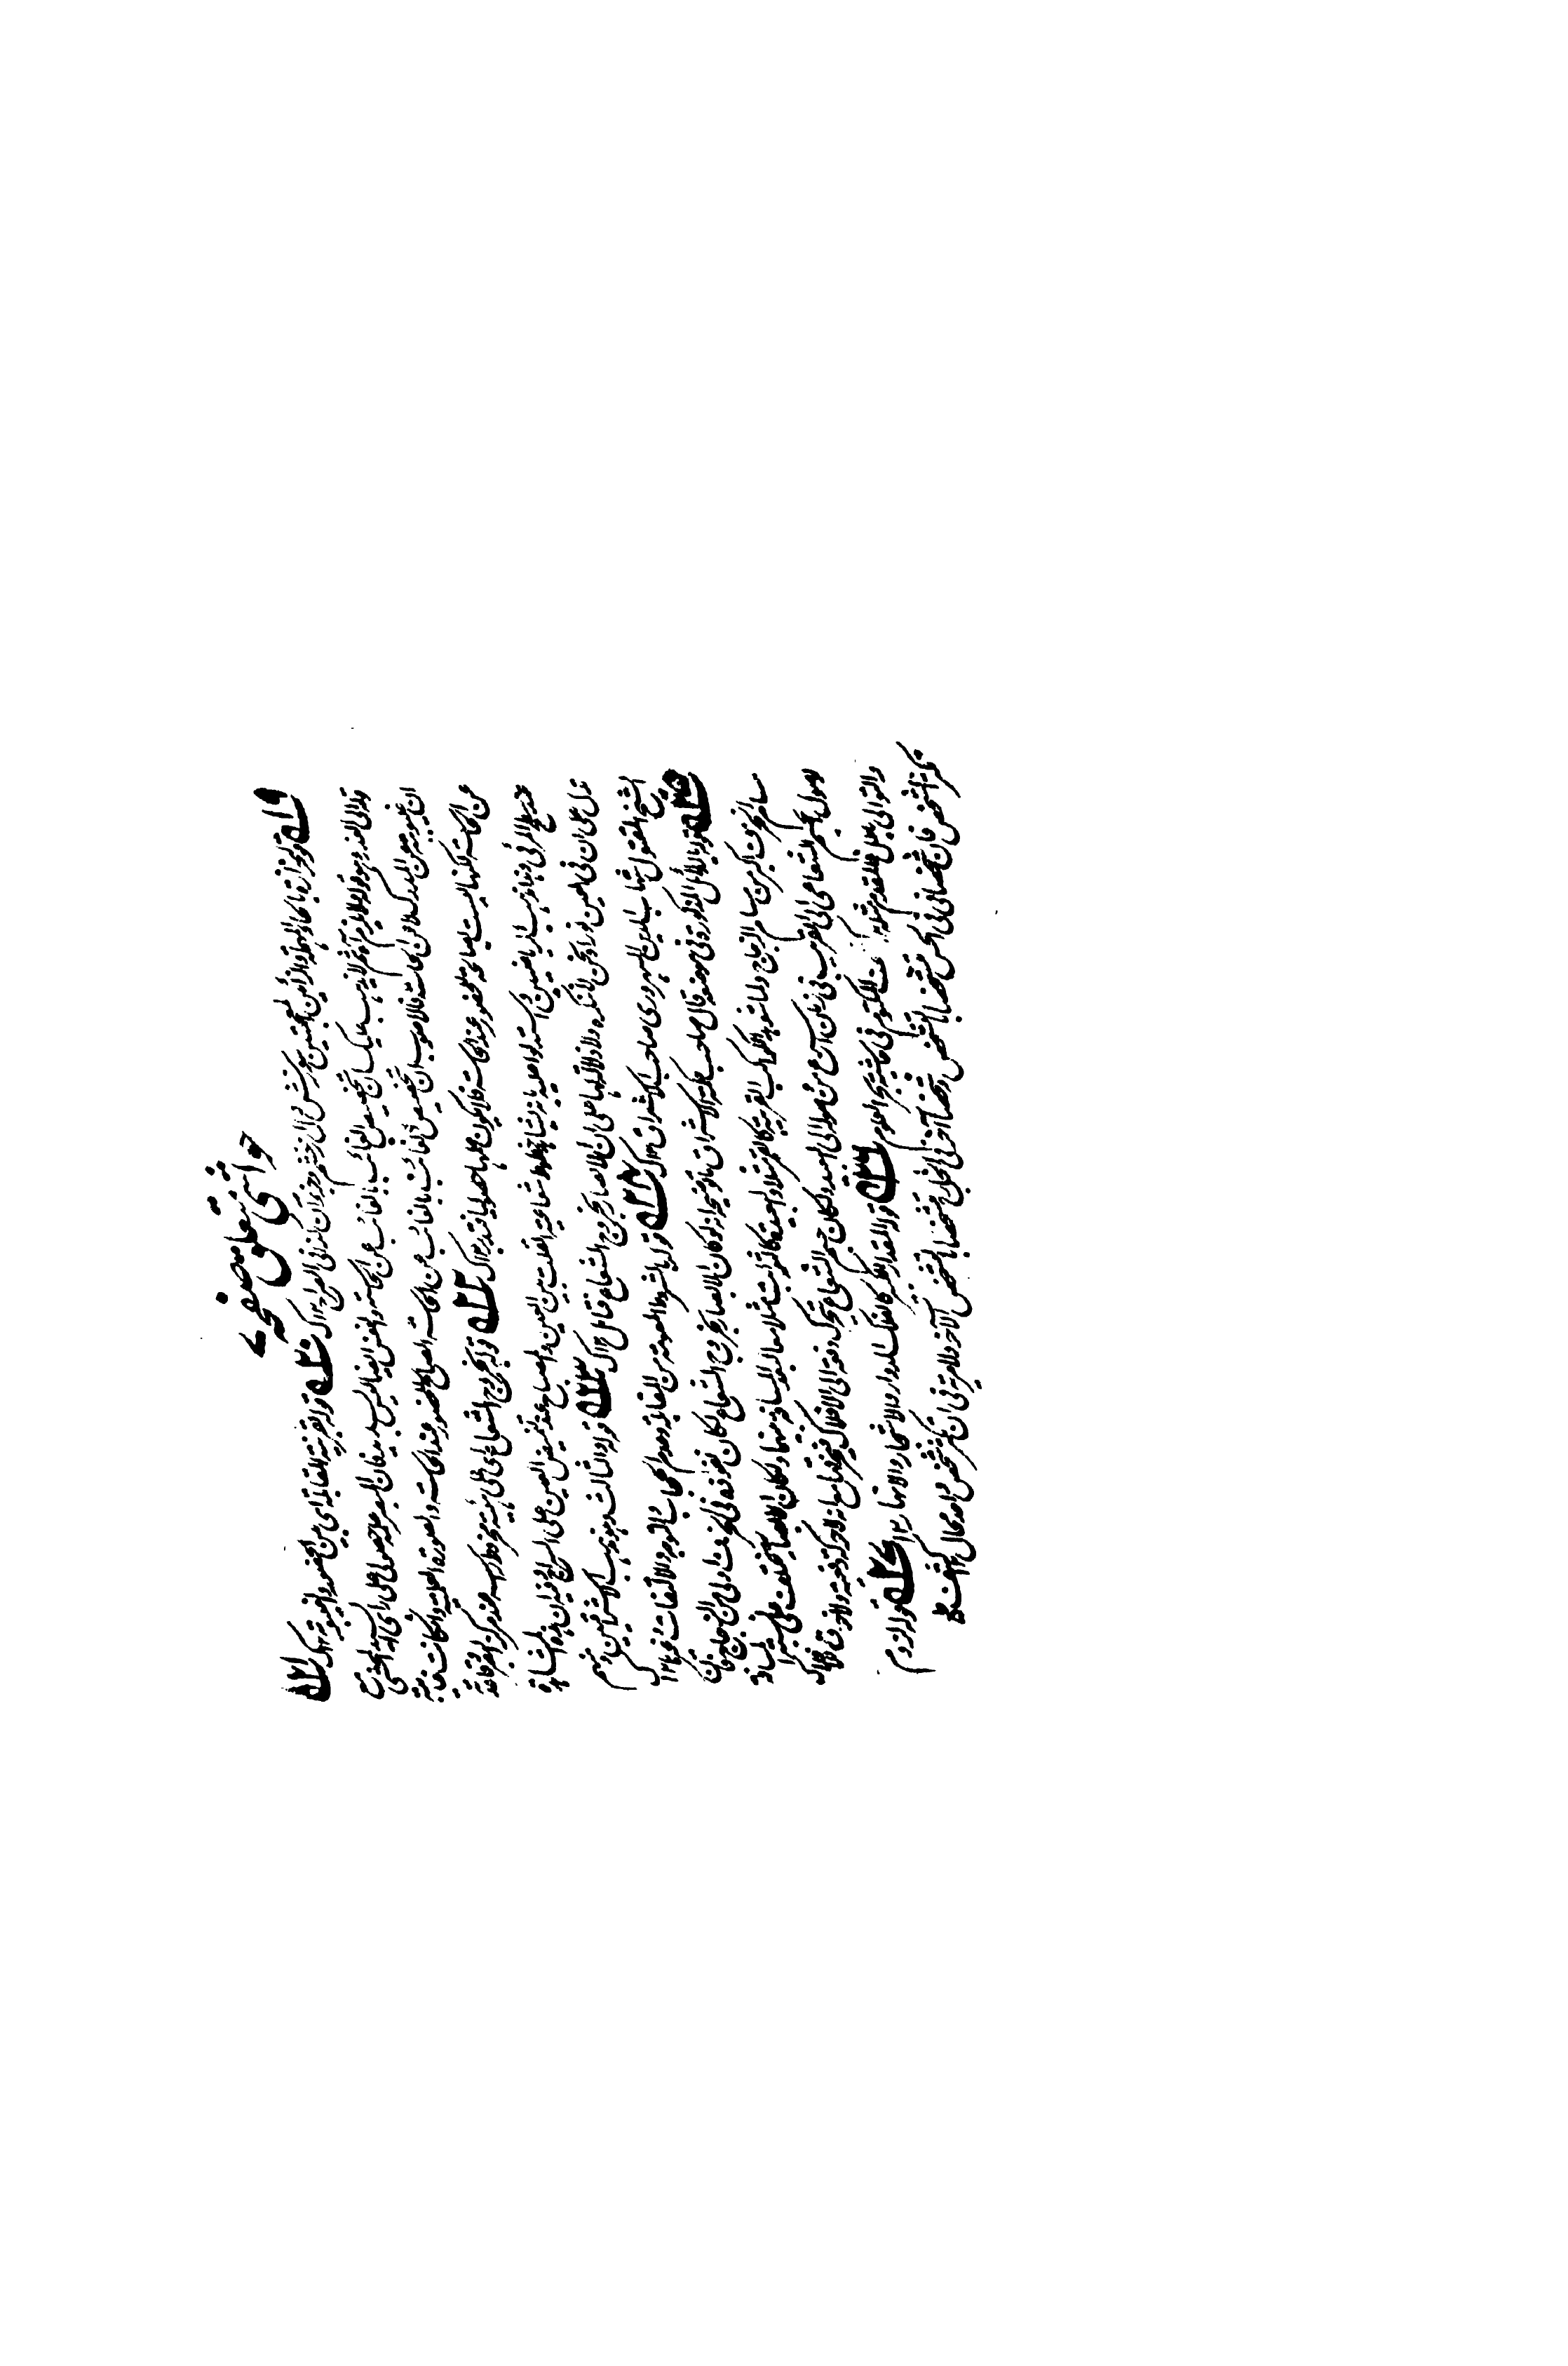 حواشی متعلق صفحہ
۱۹ قوله خزازة بالحاء المهملة والزائين المعجمتين سوزش دل از خشم وجز آن كذا فی الصراح ۱۲ ک ۲۰ قوله بقرينة المقابلة ای بين الحضور والغيبة ۱۲ ک ۲۱
قوله الى العدد وهو قوله ولا يلزم آه ثم لا يذهب عليك ان تخصيص الغائب بالغائب عن الحاسة والنفس ايضا ليس بسديد فان المبصر علمه حصولی على رای السيد المحشی مع
ان غيبوبة عن المدرك لا عن الحاسة فالاصوب ان تخصيص الغائب بالغائب عن الحاسة الصالح للحضور عند الحاسة والصورة العلمية وان كانت غائبة
عن الحاسة لكنها ليست بصالحة للحضور عند الحاسة فلا يكون علمها حصوليا فتدبر ۱۲ ک ۲۲ قوله بخروج الشعاع ای على هيئة مخروط رأسه عند مركز البصر وقاعدته
عند سطح المرئی وهذا مذهب الرياضيين واستدلوا عليه بانه يشاهد خطوط شعاعية انفلتت بين العين والمصباح عند تغميض العين على السراج وفيه ان هذه المشاهدة
تدل على ان فی العين نورا ونحن لا ننكره ولا دلالة لها على ان الابصار بخروج الشعاع فتامل ۱۲ ک ۲۳ قوله والثالث وهو مذهب الاشراقيين ومنهم
الشيخ المقتول شهاب الدين السهروردی صاحب حكمة الاشراق ۱۲ ک ۲۴ قوله بالشروط المعدة من المقابلة وعدم الحجاب والتوجه والالتفات ونحوها ۱۲ ک
۲۵ قوله بالدلائل المذكورة فی موضعه قال صاحب حكمة الاشراق ما توضيحه انه لو كان الابصار بخروج الشعاع لكان نفوذه فی الخزف اولى من الزجاج فان
مسام الخزف اكبر من مسام الزجاج ولما شوهد الكواكب القريبة كالقمر مثلا والبعيدة كالثوابت مثلا معا لبعد المسافة بينهما ولكان الابصار يختلف على نسبة المسافة
لوصول الجسم الشعاعی الى القريب فی زمان اسرع من وصوله الى البعيد ولكان جسم الشعاع يتحرك دفعة الى الافلاك فيخرقها مع انه لا حركة دفعية ولا خرق للافلاك
والتوالی باطل فالمقدم مثله فی حاشية بحر العلوم ۲۶ قوله المقدار الفلكی كالفلك الدوار والاشجار والانهار ۱۲ ۲۷ قوله لزوم
تكرر الشخص فان شخصا فی الحس متشخصا بالشخص وشخصا آخر فی الخيال متشخصا بالتشخص الآخر ولا مرية فی ان تكرر شخص واحد محال ۱۲ کشف